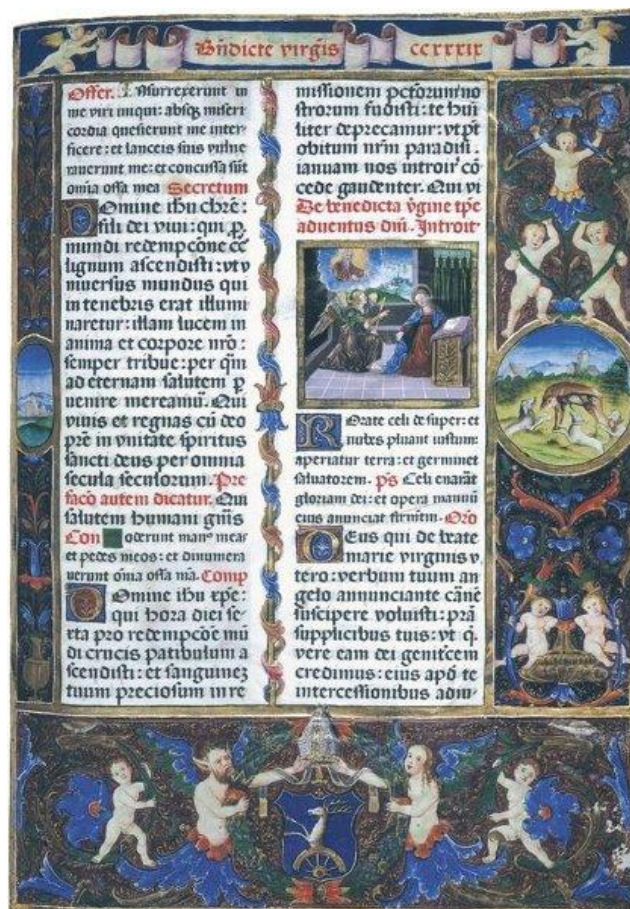 Bndicte virgis ccxxxix
Offer. Insurrexerunt in
me viri iniqui: absq; miseri
cordia quesierunt me inter
ficere: et lanceis suis vulne
rauerunt me: et concussa sūt
omīa ossa mea Secretum
Domine ihu chrē:
fili dei viui: qui p
mundi redempcōne cē
lignum ascendisti: vt v
niuersus mundus qui
in tenebris erat illumi
naretur: illam lucem in
anima et corpore nrō:
semper tribue: per qm̄
ad eternam salutem p
uenire mereamū. Qui
viuis et regnas cū deo
prē in vnitate spiritus
sancti deus per omnia
secula seculorum. Pre
facō autem dicatur. Qui
salutem humani gnīs
Con Foderunt man⁹ meas
et pedes meos: et dinumera
uerunt ōnia ossa mā. Comp
Domine ihu xpe:
qui hora diei se
xta pro redempcōe mū
di crucis patibulum a
scendisti: et sanguinez
tuum preciosum in re
missionem pctorum no
strorum fudisti: te hūi
liter deprecamur: vt pt
obitum nrm paradisi.
ianuam nos introir cō
cede gaudenter. Qui vi
De benedicta v̄gine tpe
aduentus dnī. Introit
Rorate celi desuper: et
nubes pluant iustum:
aperiatur terra: et germinet
saluatorem. ps Celi enarāt
gloriam dei: et opera manuū
eius anunciat firmm̄. Oro
DEus qui de beate
marie virginis v
tero: verbum tuum an
gelo annunciante cānē
suscipere voluisti: prā
supplicibus tuis: vt q̄
vere eam dei genitcem
credimus: eius apō te
intercessionibus adiu